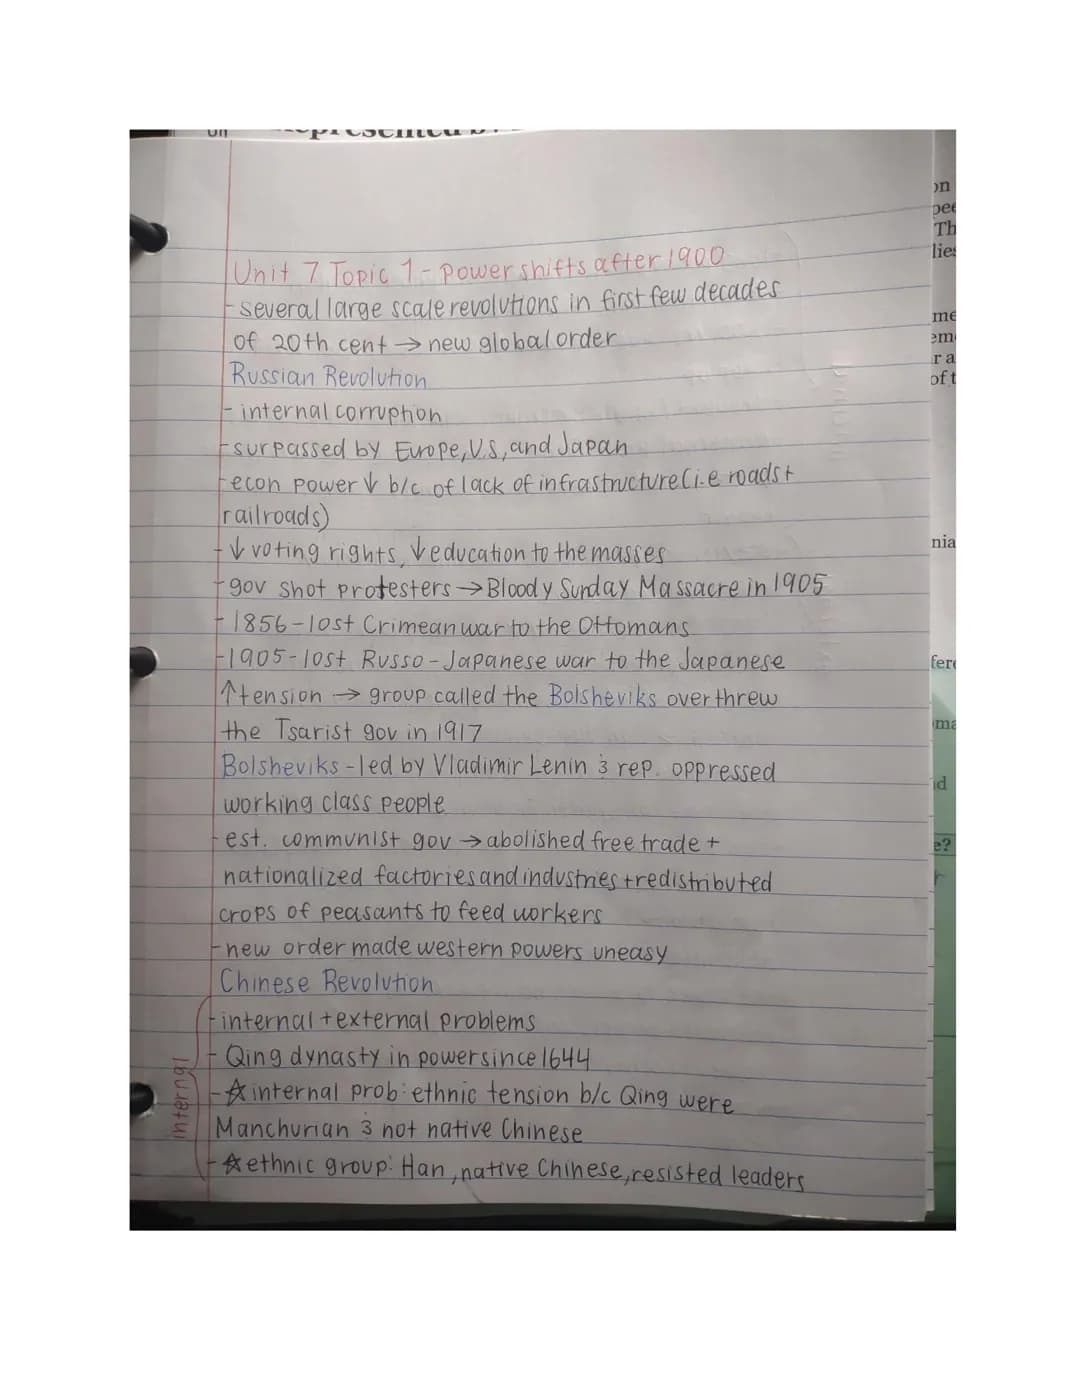 Unit 7 Topic 1 - Power shifts after 1900
- several large scale revolutions in first few decades
of 20th cent → new global order
Russian Revolution
- internal corruption
- surpassed by Europe, U.S, and Japan
- econ power ↓ b/c of lack of infrastructure (i.e roads +
railroads)
- ↓ voting rights, ↓ education to the masses
- gov shot protesters → Bloody Sunday Massacre in 1905
- 1856 - lost Crimean war to the Ottomans
- 1905 - lost Russo - Japanese war to the Japanese
↑ tension → group called the Bolsheviks overthrew
the Tsarist gov in 1917
Bolsheviks - led by Vladimir Lenin & rep. oppressed
working class people
- est. communist gov → abolished free trade +
nationalized factories and industries + redistributed
crops of peasants to feed workers
- new order made western powers uneasy
Chinese Revolution
- internal + external problems
- Qing dynasty in power since 1644
- ☆ internal prob: ethnic tension b/c Qing were
Manchurian & not native Chinese
- ☆ ethnic group: Han, native Chinese, resisted leaders
internal
on
Th
me
r a
of t
nia
e?